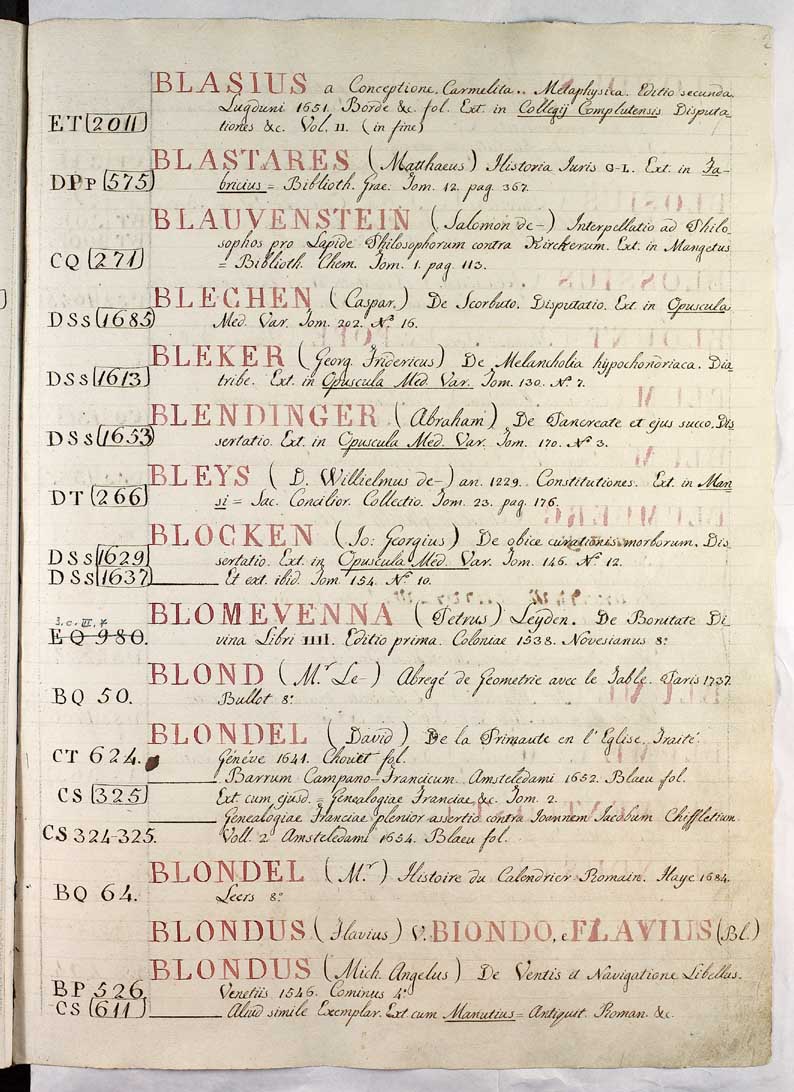 BLASIUS a Conceptione. Carmelita.. Metaphysica. Editio secunda.
Lugduni 1651. Borde &c. fol. Ext. in Collegij Complutensis Disputa-
ET 2011 tiones &c. Vol. II. (in fine)
BLASTARES (Matthaeus) Historia Iuris G-L. Ext. in Fa-
DPp 575 bricius = Biblioth. Grae. Tom. 12. pag. 367.
BLAUVENSTEIN (Salomon de-) Interpellatio ad Philo-
sophos pro Lapide Philosophorum contra Kircherum. Ext. in Mangetus
CQ 271 = Biblioth. Chem. Tom. 1. pag. 113.
BLECHEN (Caspar.) De Scorbuto. Disputatio. Ext. in Opuscula
DSs 1685 Med. Var. Tom. 202. Nº 16.
BLEKER (Georg. Fridericus) De Melancholia hypochondriaca. Dia-
DSs 1613 tribe. Ext. in Opuscula Med. Var. Tom. 130. Nº 7.
BLENDINGER (Abraham) De Pancreate et ejus succo. Dis-
DSs 1653 sertatio. Ext. in Opuscula Med. Var. Tom. 170. Nº 3.
BLEYS (D. Willielmus de-) an. 1229. Constitutiones. Ext. in Man-
DT 266 si = Sac. Concilior. Collectio. Tom. 23. pag. 176.
BLOCKEN (Jo: Georgius) De obice curationis morborum. Dis-
DSs 1629 sertatio. Ext. in Opuscula Med. Var. Tom. 146. Nº 12.
DSs 1637 Et ext. ibid. Tom. 154. Nº 10.
BLOMEVENNA (Petrus) Leyden. De Bonitate Di-
EQ 980. vina Libri IIII. Editio prima. Coloniae 1538. Novesianus 8º
BLOND (M.r Le-) Abregé de Geometrie avec le Table. Paris 1737.
BQ 50. Bullot 8º
BLONDEL (David) De la Primaute en l'Eglise. Traité.
CT 624. Généve 1641. Chouët fol.
Barrum Campano-Francicum. Amsteledami 1652. Blaeu fol.
CS 325 Ext cum ejusd. = Genealogiae Franciae &c. Tom. 2.
Genealogiae Franciae plenior assertio contra Ioannem Jacobum Chiffletium.
CS 324-325. Voll. 2 Amsteledami 1654. Blaeu fol.
BLONDEL (M.r) Histoire du Calendrier Romain. Haye 1684.
BQ 64. Leers 8º
BLONDUS (Flavius) V. BIONDO, e FLAVIUS (Bl.)
BLONDUS (Mich. Angelus) De Ventis et Navigatione Libellus.
BP 526 Venetiis 1546. Cominus 4º
CS 611 Aliud simile Exemplar. Ext cum Manutius = Antiquit. Roman. &c.